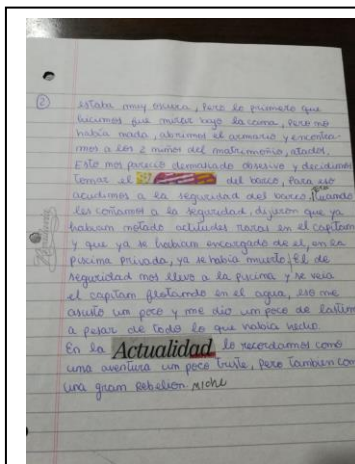 ②
estaba muy oscura, Pero lo primero que
hicimos fue mirar bajo la cama, Pero no
había nada, abrimos el armario y encontra-
mos a los 2 niños del matrimonio, atados.
Esto nos pareció demasiado obsesivo y decidimos
tomar el del barco, Para eso
acudimos a la seguridad del barco, cuando
les contamos a la seguridad, dijeron que ya
habian notado actitudes raras en el capitam
y que ya se habiam encargado de el, en la
piscina privada, ya se habia muerto, El de
seguridad nos llevo a la piscina y se veia
el capitam flotando en el agua, eso me
asusto um poco y me dio um poco de lastim
a pesar de todo lo que habia hecho.
En la Actualidad lo recordamos como
uma aventura um poco triste, Pero tambien con
una gram Rebelion